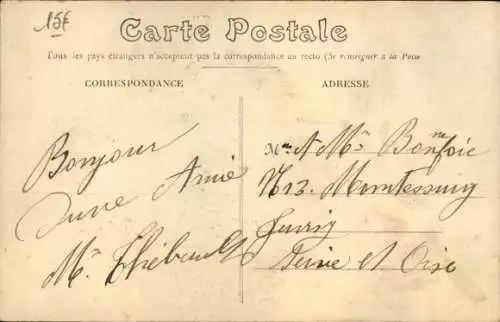 15€
Carte Postale
Tous les pays étrangers n'acceptent pas la correspondance au recto (Se renseigner à la Poste
CORRESPONDANCE
ADRESSE
Bonjour
d'une Amie
Mme Thébault
M A Mme Bonfoie
N 13.
Juvisy
Seine et Oise